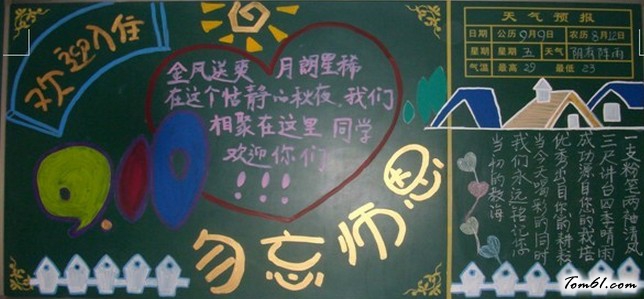 欢迎入住
金风送爽 月朗星稀
在这个恬静的秋夜,我们
相聚在这里 同学
欢迎你们
!!!
9.10
勿忘师恩
天气预报
日期 公历 9月9日 农历 8月12日
星期 五 天气 阴有阵雨
气温 最高 29 最低 23
一支粉笔两袖清风
三尺讲台四季晴雨
成功源自您的栽培
优秀出自您的耕耘
当今天喝彩的同时
我们永远铭记你
当初的教诲
Tom61.com